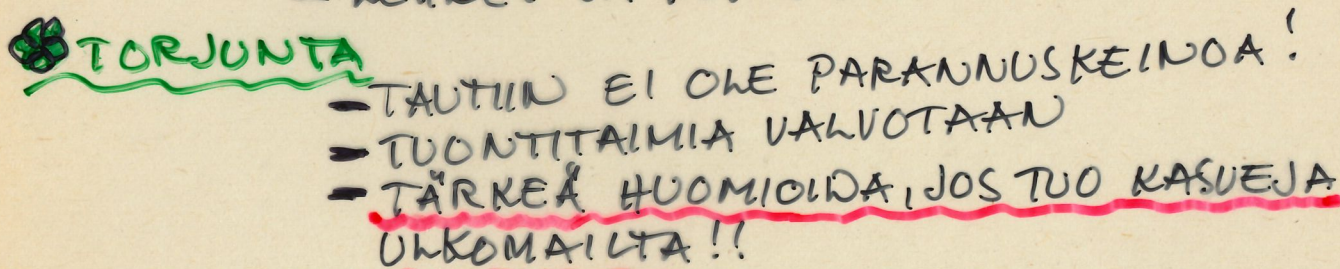 TORJUNTA
- TAUTIIN EI OLE PARANNUSKEINOA!
- TUONTITAIMIA VALVOTAAN
- TÄRKEÄ HUOMIOIDA, JOS TUO KASVEJA
ULKOMAILTA!!